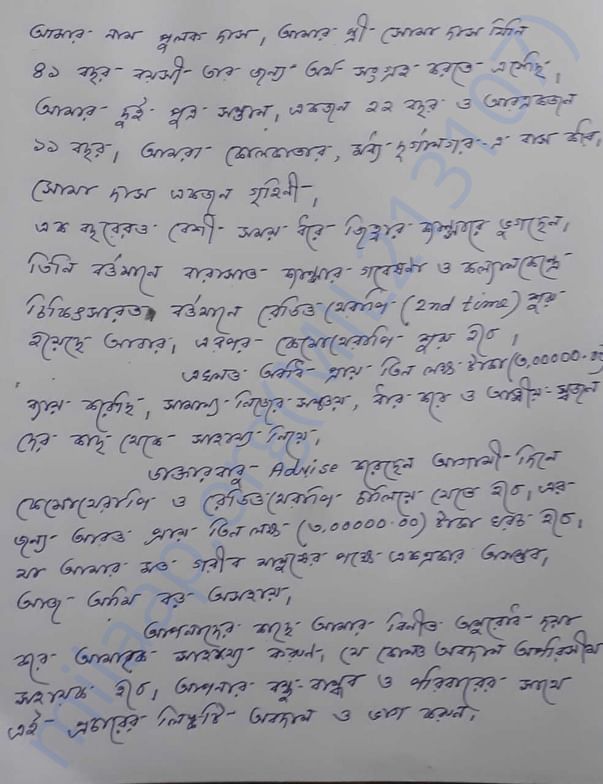 আমার নাম পুলক দাস, আমার স্ত্রী সোমা দাস যিনি
৪১ বছর বয়সী তার জন্য অর্থ সংগ্রহ করতে এসেছি,
আমার দুই পুত্র সন্তান, একজন ২২ বছর ও আরএকজন
১১ বছর, আমরা কোলকাতার, মধ্য দূর্গানগর এ বাস করি,
সোমা দাস একজন গৃহিনী,
এক বছরেরও বেশী সময় ধরে জিহ্বার ক্যান্সারে ভুগছেন,
তিনি বর্তমানে বারাসাত ক্যান্সার গবেষনা ও কল্যানকেন্দ্রে
চিকিৎসারত বর্তমানে রেডিওথেরাপি (2nd time) শুরু
হয়েছে আবার, এরপর কেমোথেরাপি শুরু হবে,
এখনও অবধি প্রায় তিন লক্ষ টাকা (৩,০০০০০.০০)
ব্যায় করেছি, সামান্য নিজের সঞ্চয়, ধার করে ও আত্মীয় স্বজন
দের কাছ থেকে সাহায্য নিয়ে,
ডাক্তারবাবু Advise করেছেন আগামী দিনে
কেমোথেরাপি ও রেডিওথেরাপি চালিয়ে যেতে হবে, এর
জন্য আরও প্রায় তিন লক্ষ (৩,০০০০০.০০) টাকা খরচ হবে,
যা আমার মত গরীব মানুষের পক্ষে একপ্রকার অসম্ভব,
আজ আমি বড় অসহায়,
আপনাদের কাছে আমার বিনীত অনুরোধ দয়া
করে আমাকে সাহায্য করুন, যে কোনও অবদান অপরিসীম
সহায়ক হবে, আপনার বন্ধু-বান্ধব ও পরিবারের সাথে
এই প্রচারের লিঙ্কটি অবদান ও ভাগ করুন,